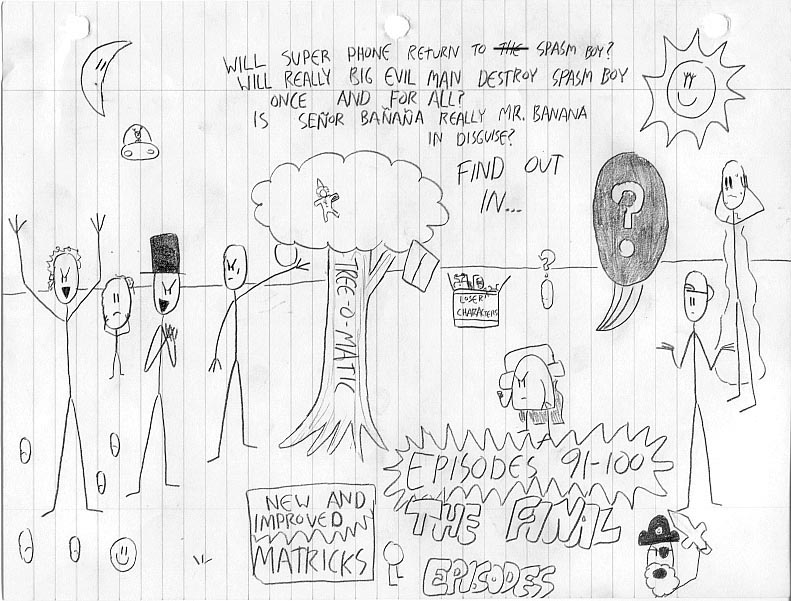 WILL SUPER PHONE RETURN TO THE SPASM BOY?
WILL REALLY BIG EVIL MAN DESTROY SPASM BOY
ONCE AND FOR ALL?
IS SEÑOR BAÑAÑA REALLY MR. BANANA
IN DISGUISE?
FIND OUT
IN...
?
?
TREE-O-MATIC
LOSER
CHARACTERS
EPISODES 91-100
THE FINAL
EPISODES
NEW AND
IMPROVED
MATRICKS